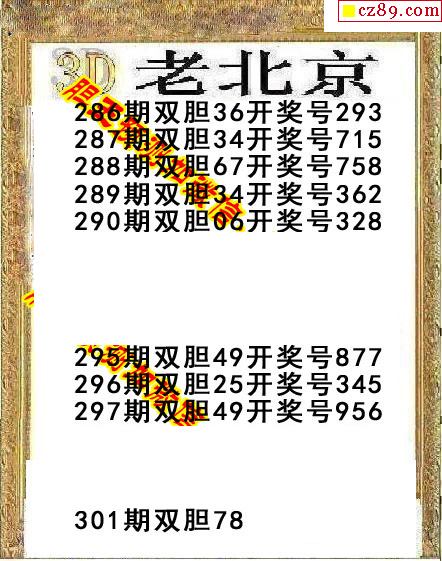 cz89.com
3D 老北京
286期双胆36开奖号293
287期双胆34开奖号715
288期双胆67开奖号758
289期双胆34开奖号362
290期双胆06开奖号328
295期双胆49开奖号877
296期双胆25开奖号345
297期双胆49开奖号956
301期双胆78